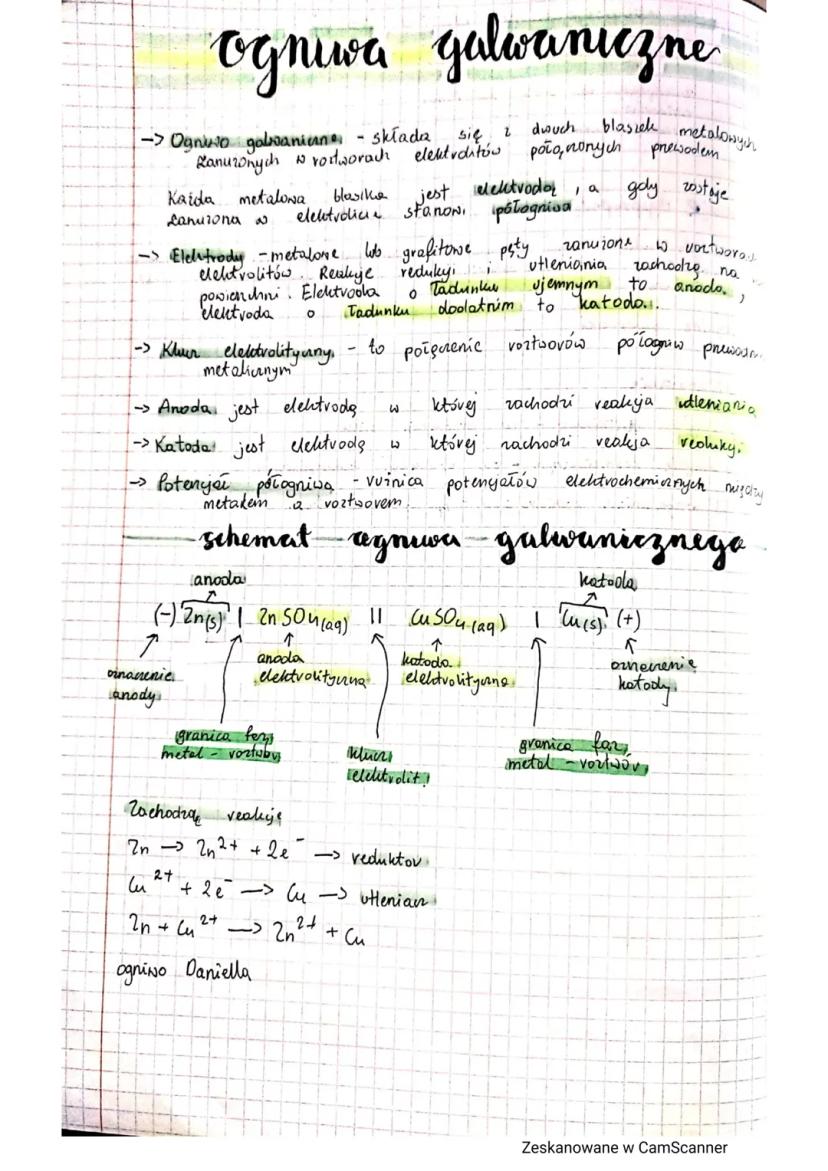 ogniwa galwaniczne
-> Ogniwo galwaniczne - składa się z dwuch blaszek metalowych
zanurzonych w roztworach elektrolitów połączonych przewodem
Każda metalowa blaszka jest elektrodą, a gdy zostaje
zanurzona w elektrolicie stanowi półogniwa
-> Elektrody - metalowe lub grafitowe pręty zanurzone w
elektrolitów. Reakcje redukcji i utleniania zachodzą na
powierzchni. Elektroda o ładunku ujemnym to anoda,
elektroda o ładunku dodatnim to katoda.
-> Klucz elektrolityczny - to połączenie roztworów półogniw
metalicznym
-> Anoda jest elektrodą w której zachodzi reakcja utleniania
-> Katoda jest elektrodą w której zachodzi reakcja redukcji
-> Potencjał półogniwa - różnica potencjałów elektrochemicznych między
metalem a roztworem
schemat ogniwa galwanicznego
anoda katoda
(-) Zn(s) | ZnSO4(aq) || CuSO4(aq) | Cu(s) (+)
oznaczenie anody
anoda elektrolityczna
katoda elektrolityczna
oznaczenie katody
granica faz
metal - roztwór
klucz
elektrolit.
granica faz
metal - roztwór
Zachodzą reakcje
Zn -> Zn2+ + 2e- -> reduktor
Cu2+ + 2e- -> Cu -> utleniacz
Zn + Cu2+ -> Zn2+ + Cu
ogniwo Daniella
Zeskanowane w CamScanner